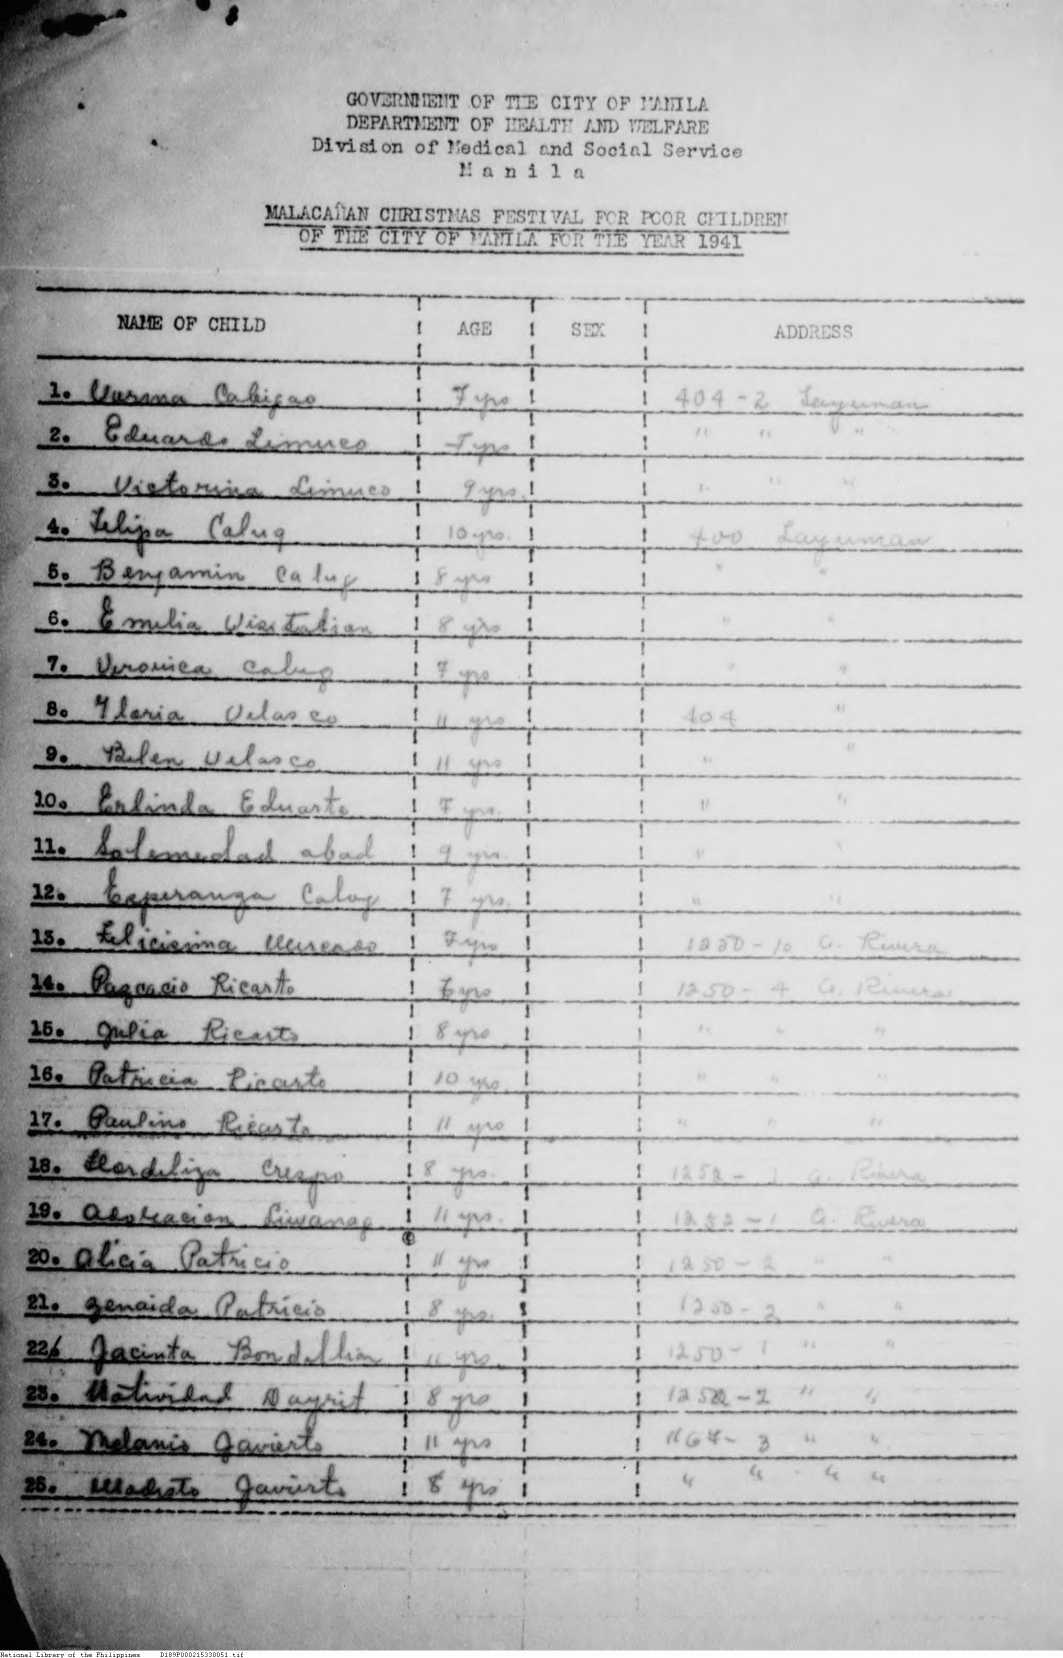 GOVERNMENT OF THE CITY OF MANILA
DEPARTMENT OF HEALTH AND WELFARE
Division of Medical and Social Service
M a n i l a
MALACAÑAN CHRISTMAS FESTIVAL FOR POOR CHILDREN
OF THE CITY OF MANILA FOR THE YEAR 1941
NAME OF CHILD AGE SEX ADDRESS
1. Cabigao 7 yrs 404 - 2 Layunan
2. Eduardo Limuco yrs " " "
3. Victorina Limuco 9 yrs. " " "
4. Felipa Calug 10 yrs. 400 Layunan
5. Benjamin Calug 8 yrs " "
6. Emilia Visitation 8 yrs " "
7. Veronica Calug 7 yrs " "
8. Ilaria Velasco 11 yrs 404 "
9. Belen Velasco 11 yrs " "
10. Erlinda Eduarte 7 yrs. " "
11. abad 9 yrs. " "
12. Esperanza Calug 7 yrs. " "
13. Felicisima Mercado 7 yrs 1250 - 10 G. Rivera
14. Ricarto yrs 1250 - 4 G. Rivera
15. Julia Ricarto 8 yrs " " "
16. Patricia Ricarto 10 yrs. " " "
17. Paulino Ricarto 11 yrs " " "
18. Flordeliza Crespo 8 yrs. 1252 - 1 G. Rivera
19. Adoracion Liwanag 11 yrs. 1252 - 1 G. Rivera
20. Alicia Patricio 11 yrs 1250 - 2 " "
21. Zenaida Patricio 8 yrs. 1250 - 2 " "
22. Jacinta 11 yrs. 1250 - 1 " "
23. Natividad Dayrit 8 yrs 1252 - 2 " "
24. Melanio Javierto 11 yrs 1167 - 3 " "
25. Modesto Javierto 8 yrs " " " "
National Library of the Philippines D189P000215338051.tif